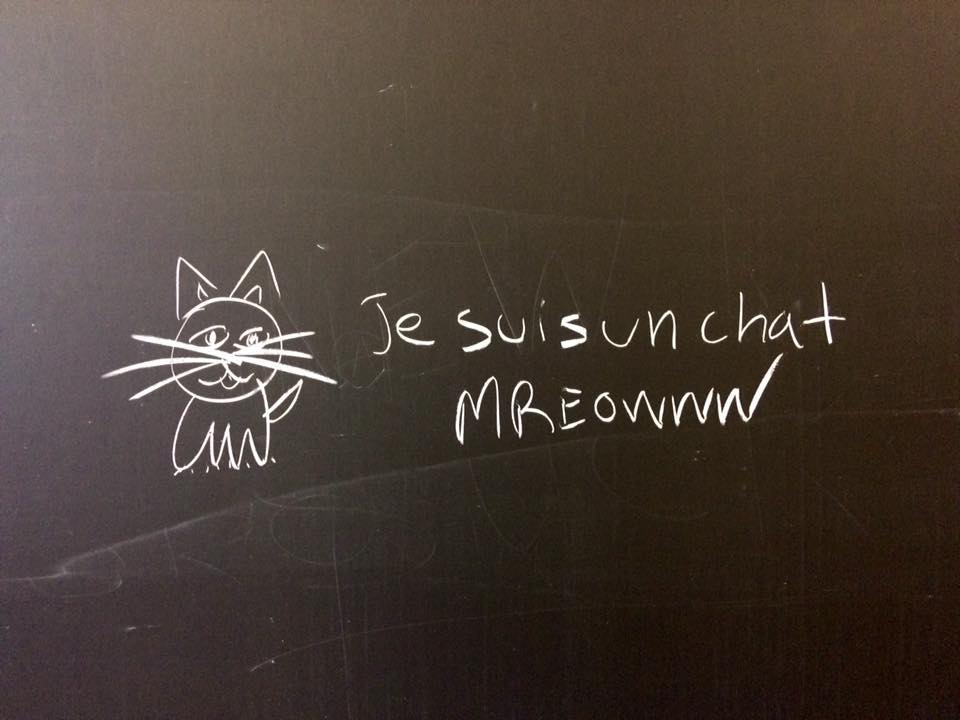 Je suis un chat
MREOWWW